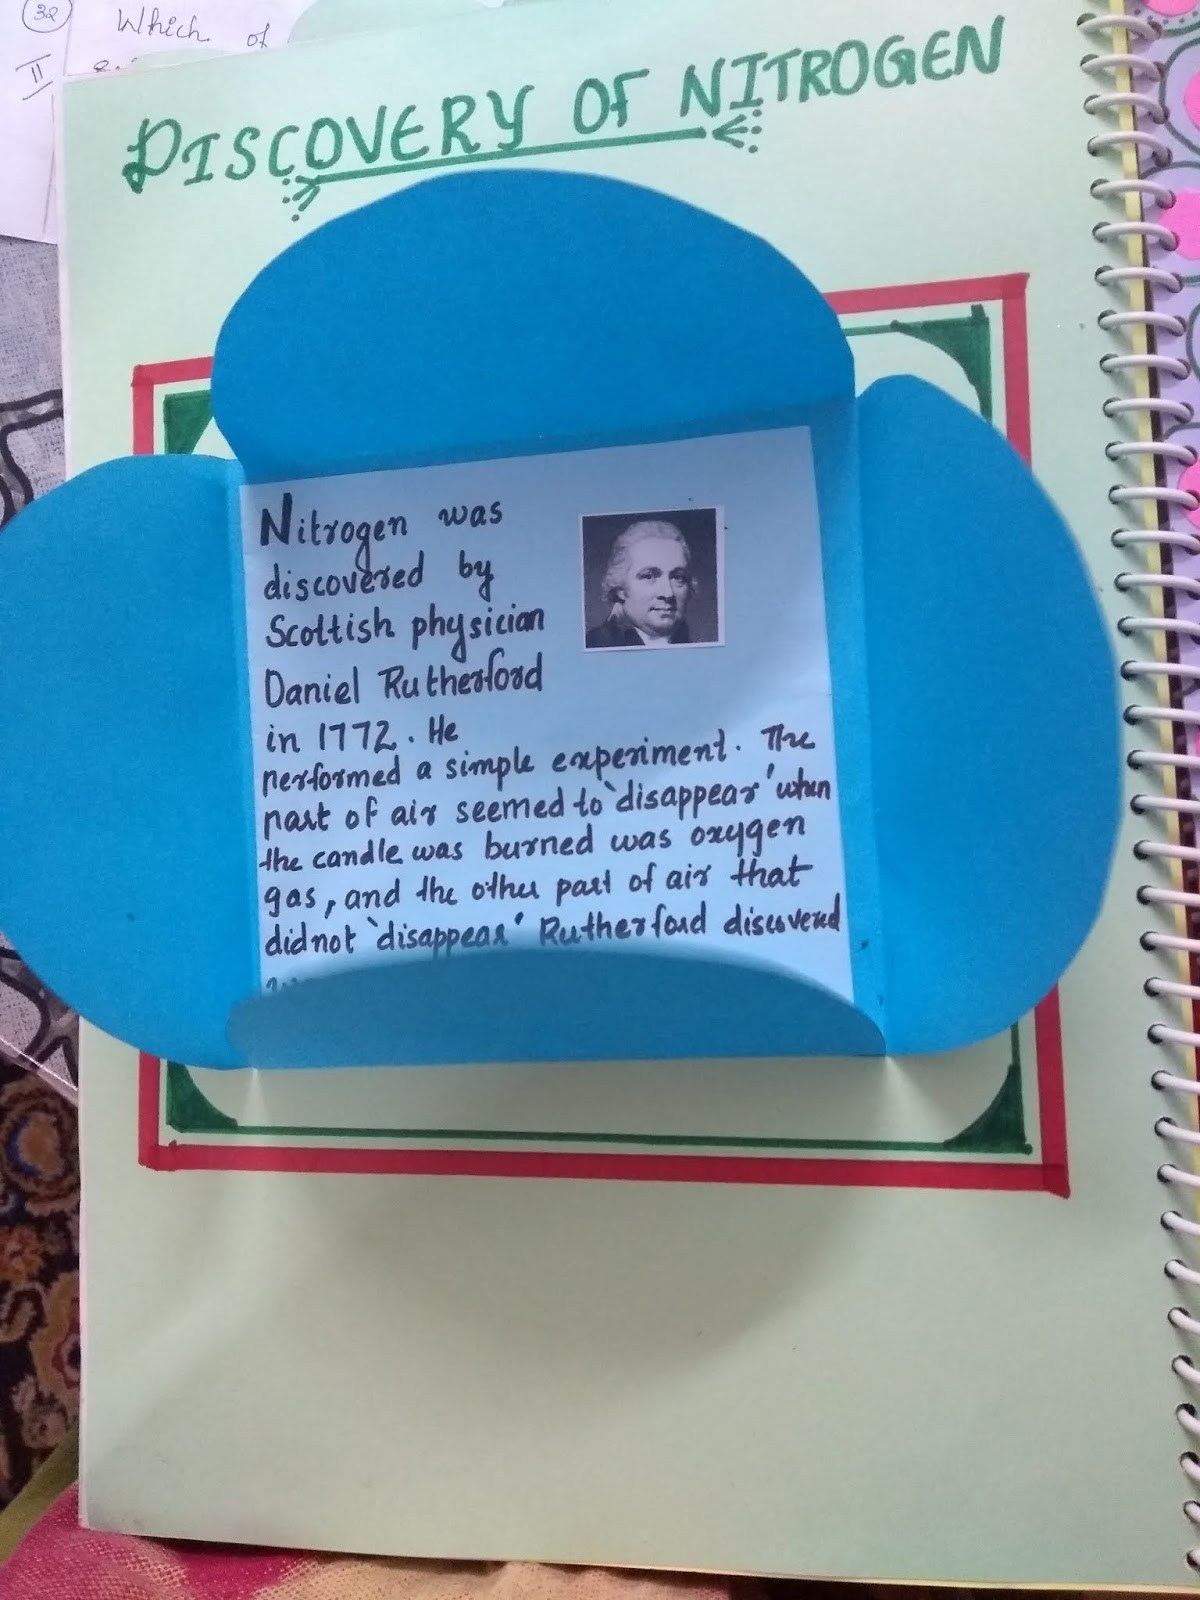 32
Which of
II
DISCOVERY OF NITROGEN
Nitrogen was
discovered by
Scottish physician
Daniel Rutherford
in 1772. He
performed a simple experiment. The
part of air seemed to 'disappear' when
the candle was burned was oxygen
gas, and the other part of air that
did not 'disappear' Rutherford discovered